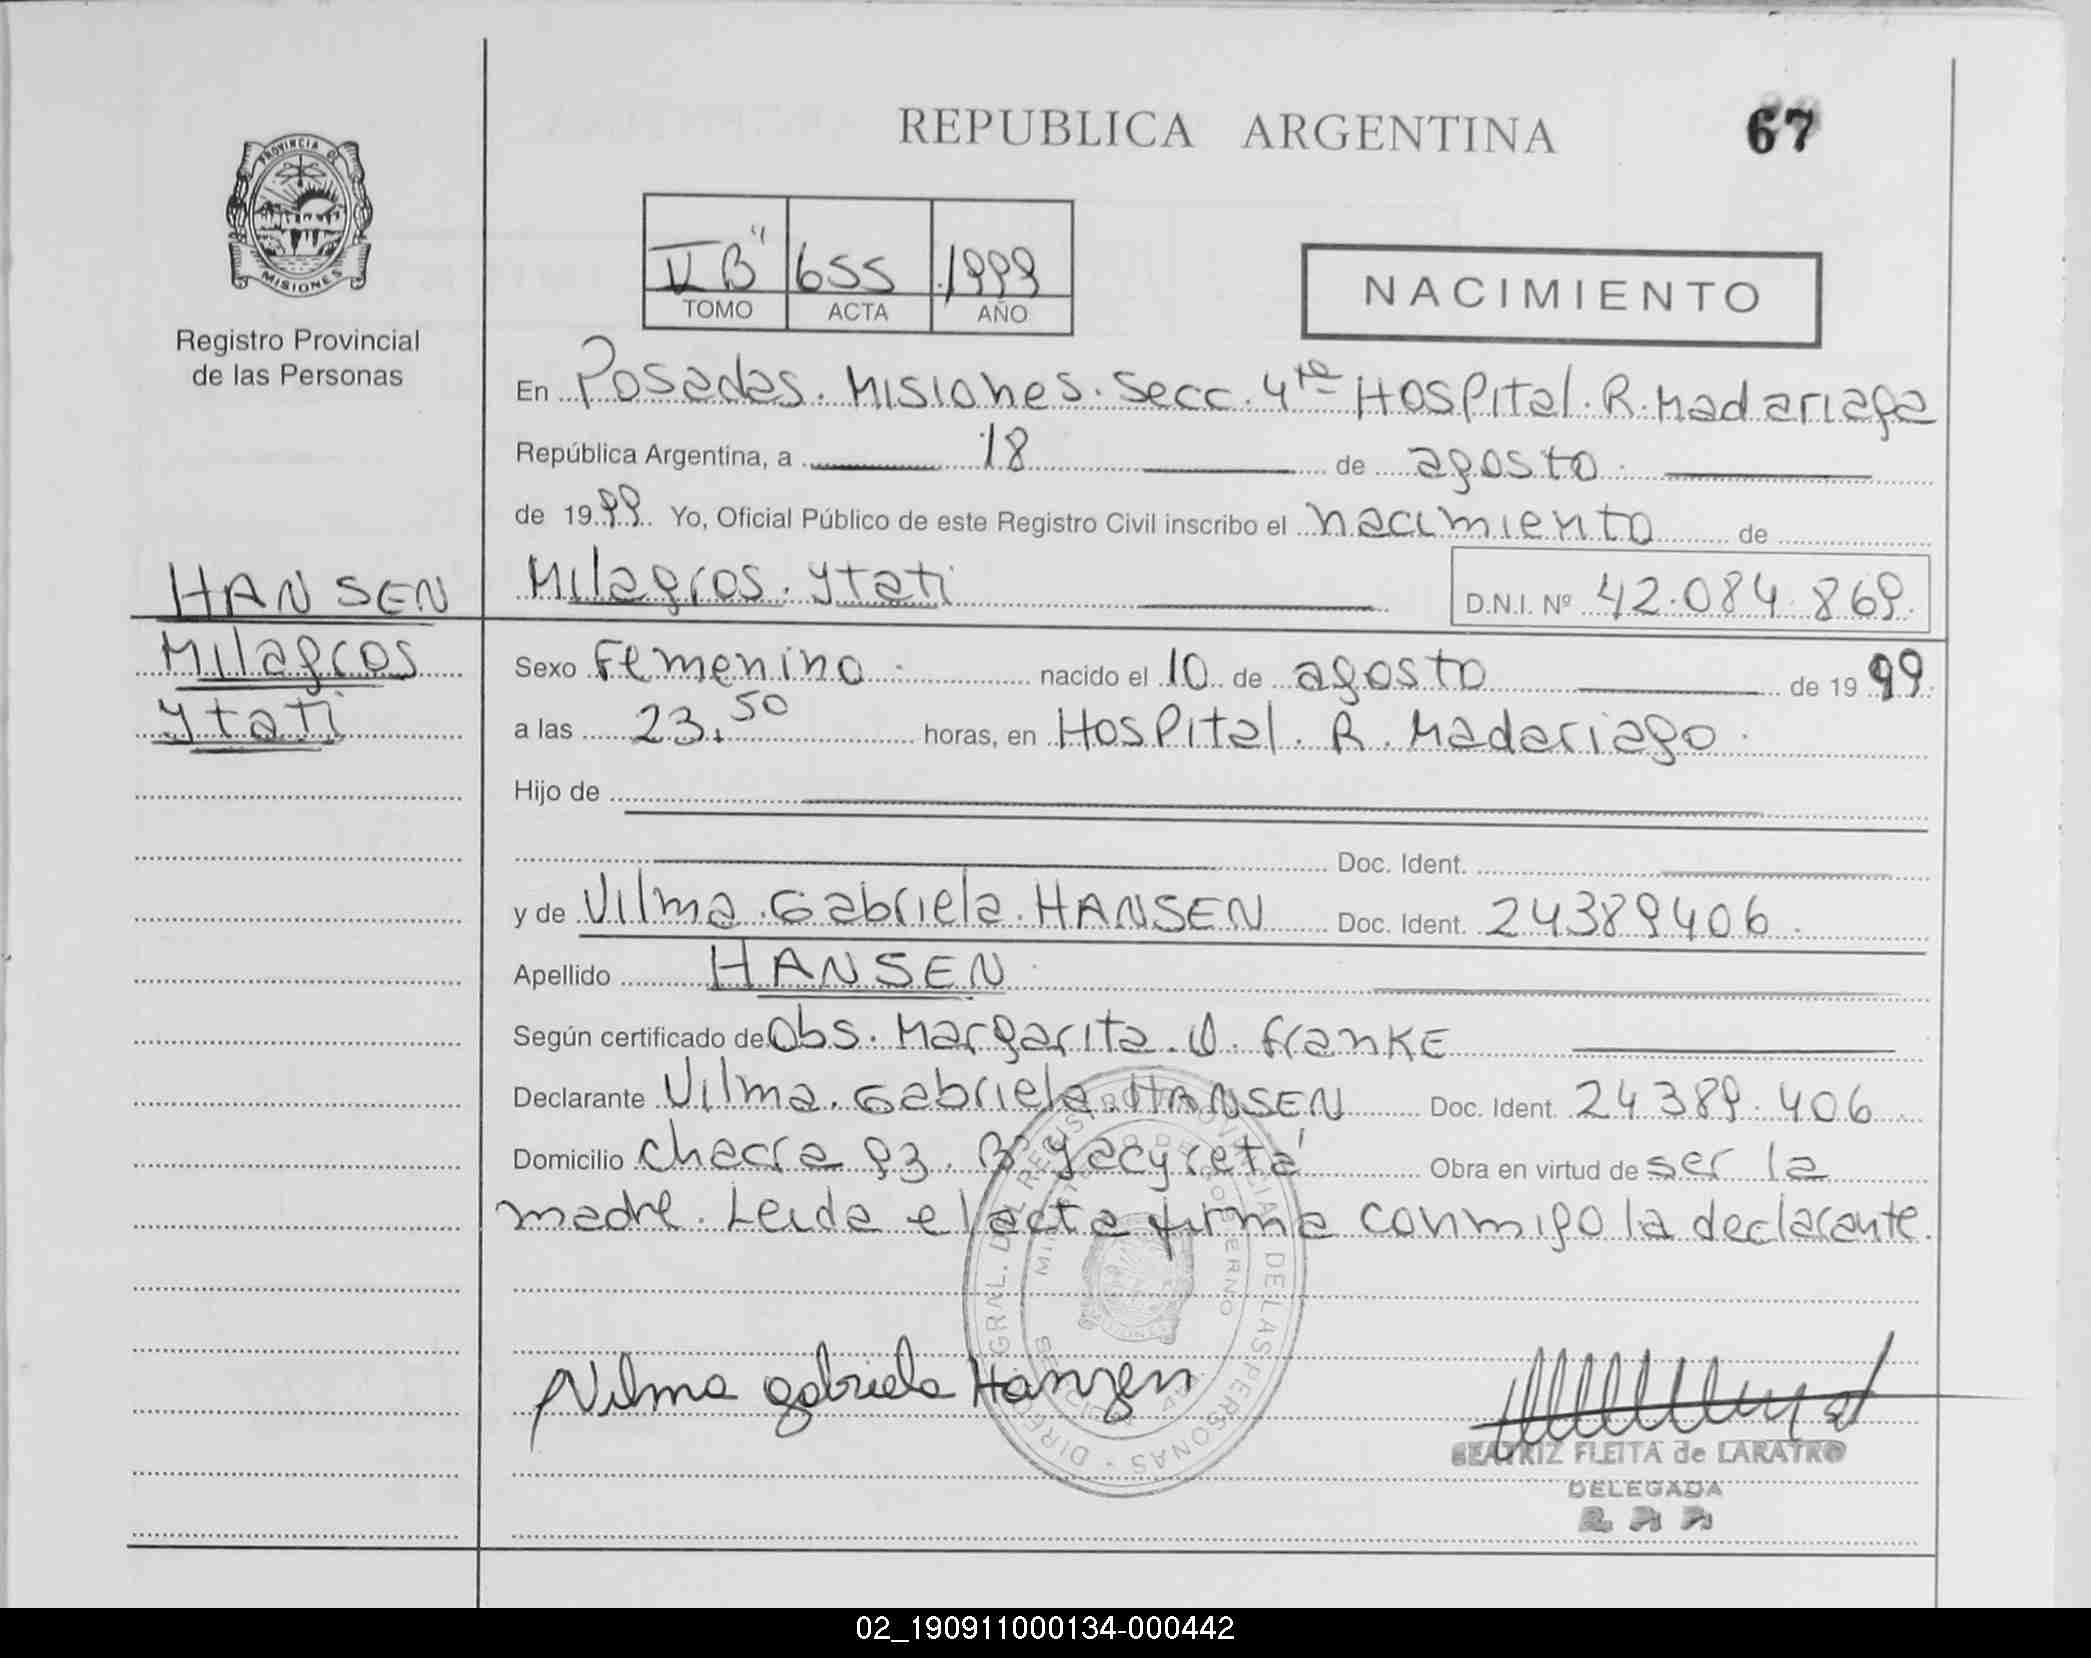 REPUBLICA ARGENTINA
67
PROVINCIA DE
MISIONES
Registro Provincial
de las Personas
II B" 655 1999
TOMO ACTA AÑO
NACIMIENTO
En Posadas. Misiones. Secc. 4ta Hospital. R. Madariaga
República Argentina, a 18 de agosto.
de 1999. Yo, Oficial Público de este Registro Civil inscribo el nacimiento de
Milagros. Ytati
D.N.I. Nº 42.084.869.
HANSEN
Milagros
Ytati
Sexo Femenino. nacido el 10 de agosto de 1999.
a las 23.50 horas, en Hospital. R. Madariago.
Hijo de
Doc. Ident.
y de Vilma. Gabriela. HANSEN Doc. Ident. 24389406.
Apellido HANSEN.
Según certificado de Obs. Margarita. franKE
Declarante Vilma. Gabriela. HANSEN Doc. Ident. 24389.406
Domicilio chacra 93. Bº Yacyretá Obra en virtud de ser la
madre. Leida el acta firma conmigo la declarante.
DIREC. GRAL. DEL REGISTRO PROVINCIAL DE LAS PERSONAS
MINISTERIO DE GOBIERNO
Vilma gabriela Hanzen
BEATRIZ FLEITA de LARATRO
DELEGADA
02_190911000134-000442